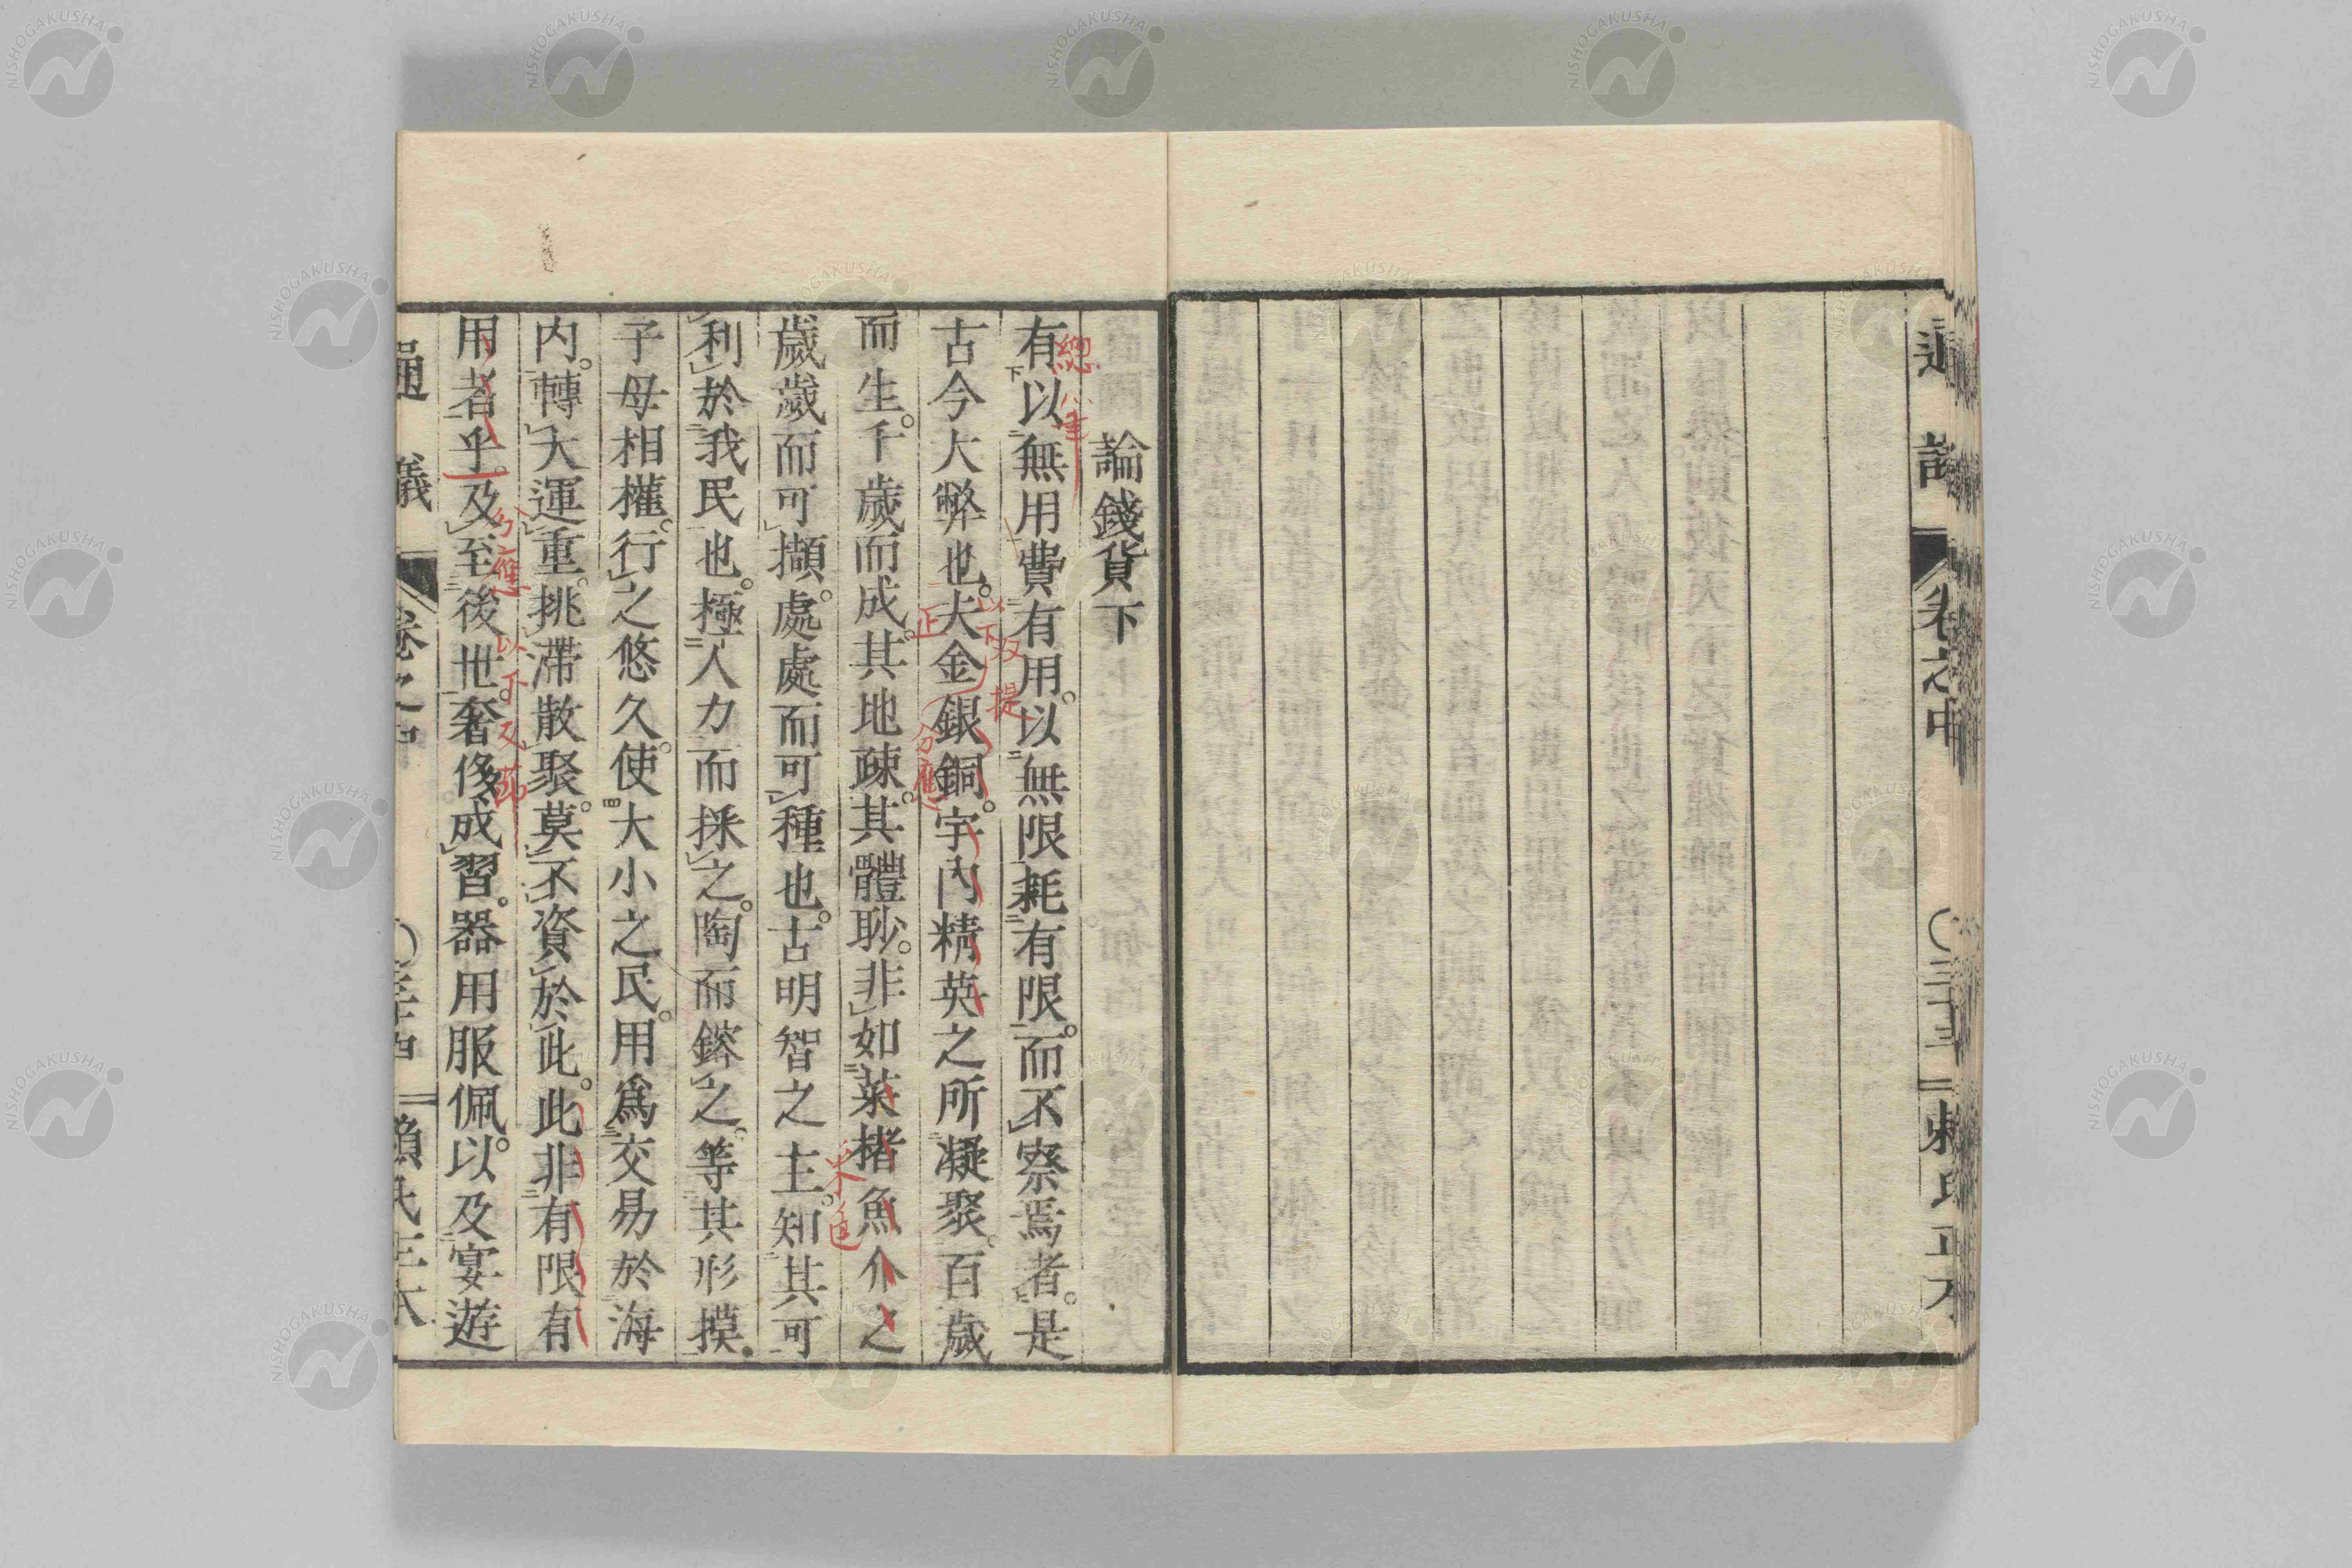 通議
卷之中
〇三十三
賴氏正本
論錢貨下
有以無用費有用。以無限耗有限。而不察焉者。是
古今大弊也。夫金銀銅。宇內精英之所凝聚。百歲
而生。千歲而成。其地疎。其體眇。非如菜楮魚介之
歲歲而可擷。處處而可種也。古明智之主。知其可
利於我民也。極人力而採之。陶而鎔之。等其形摸。
子母相權。行之悠久。使大小之民。用爲交易於海
内。轉大運重。挑滯散聚。莫不資於此。此非有限有
用者乎。及至後世。奢侈成習。器用服佩。以及宴遊
通議
卷之中
〇三十四
賴氏正本
總冒
以下反提
正
分應
米進
分應
以下反
NISHOGAKUSHA